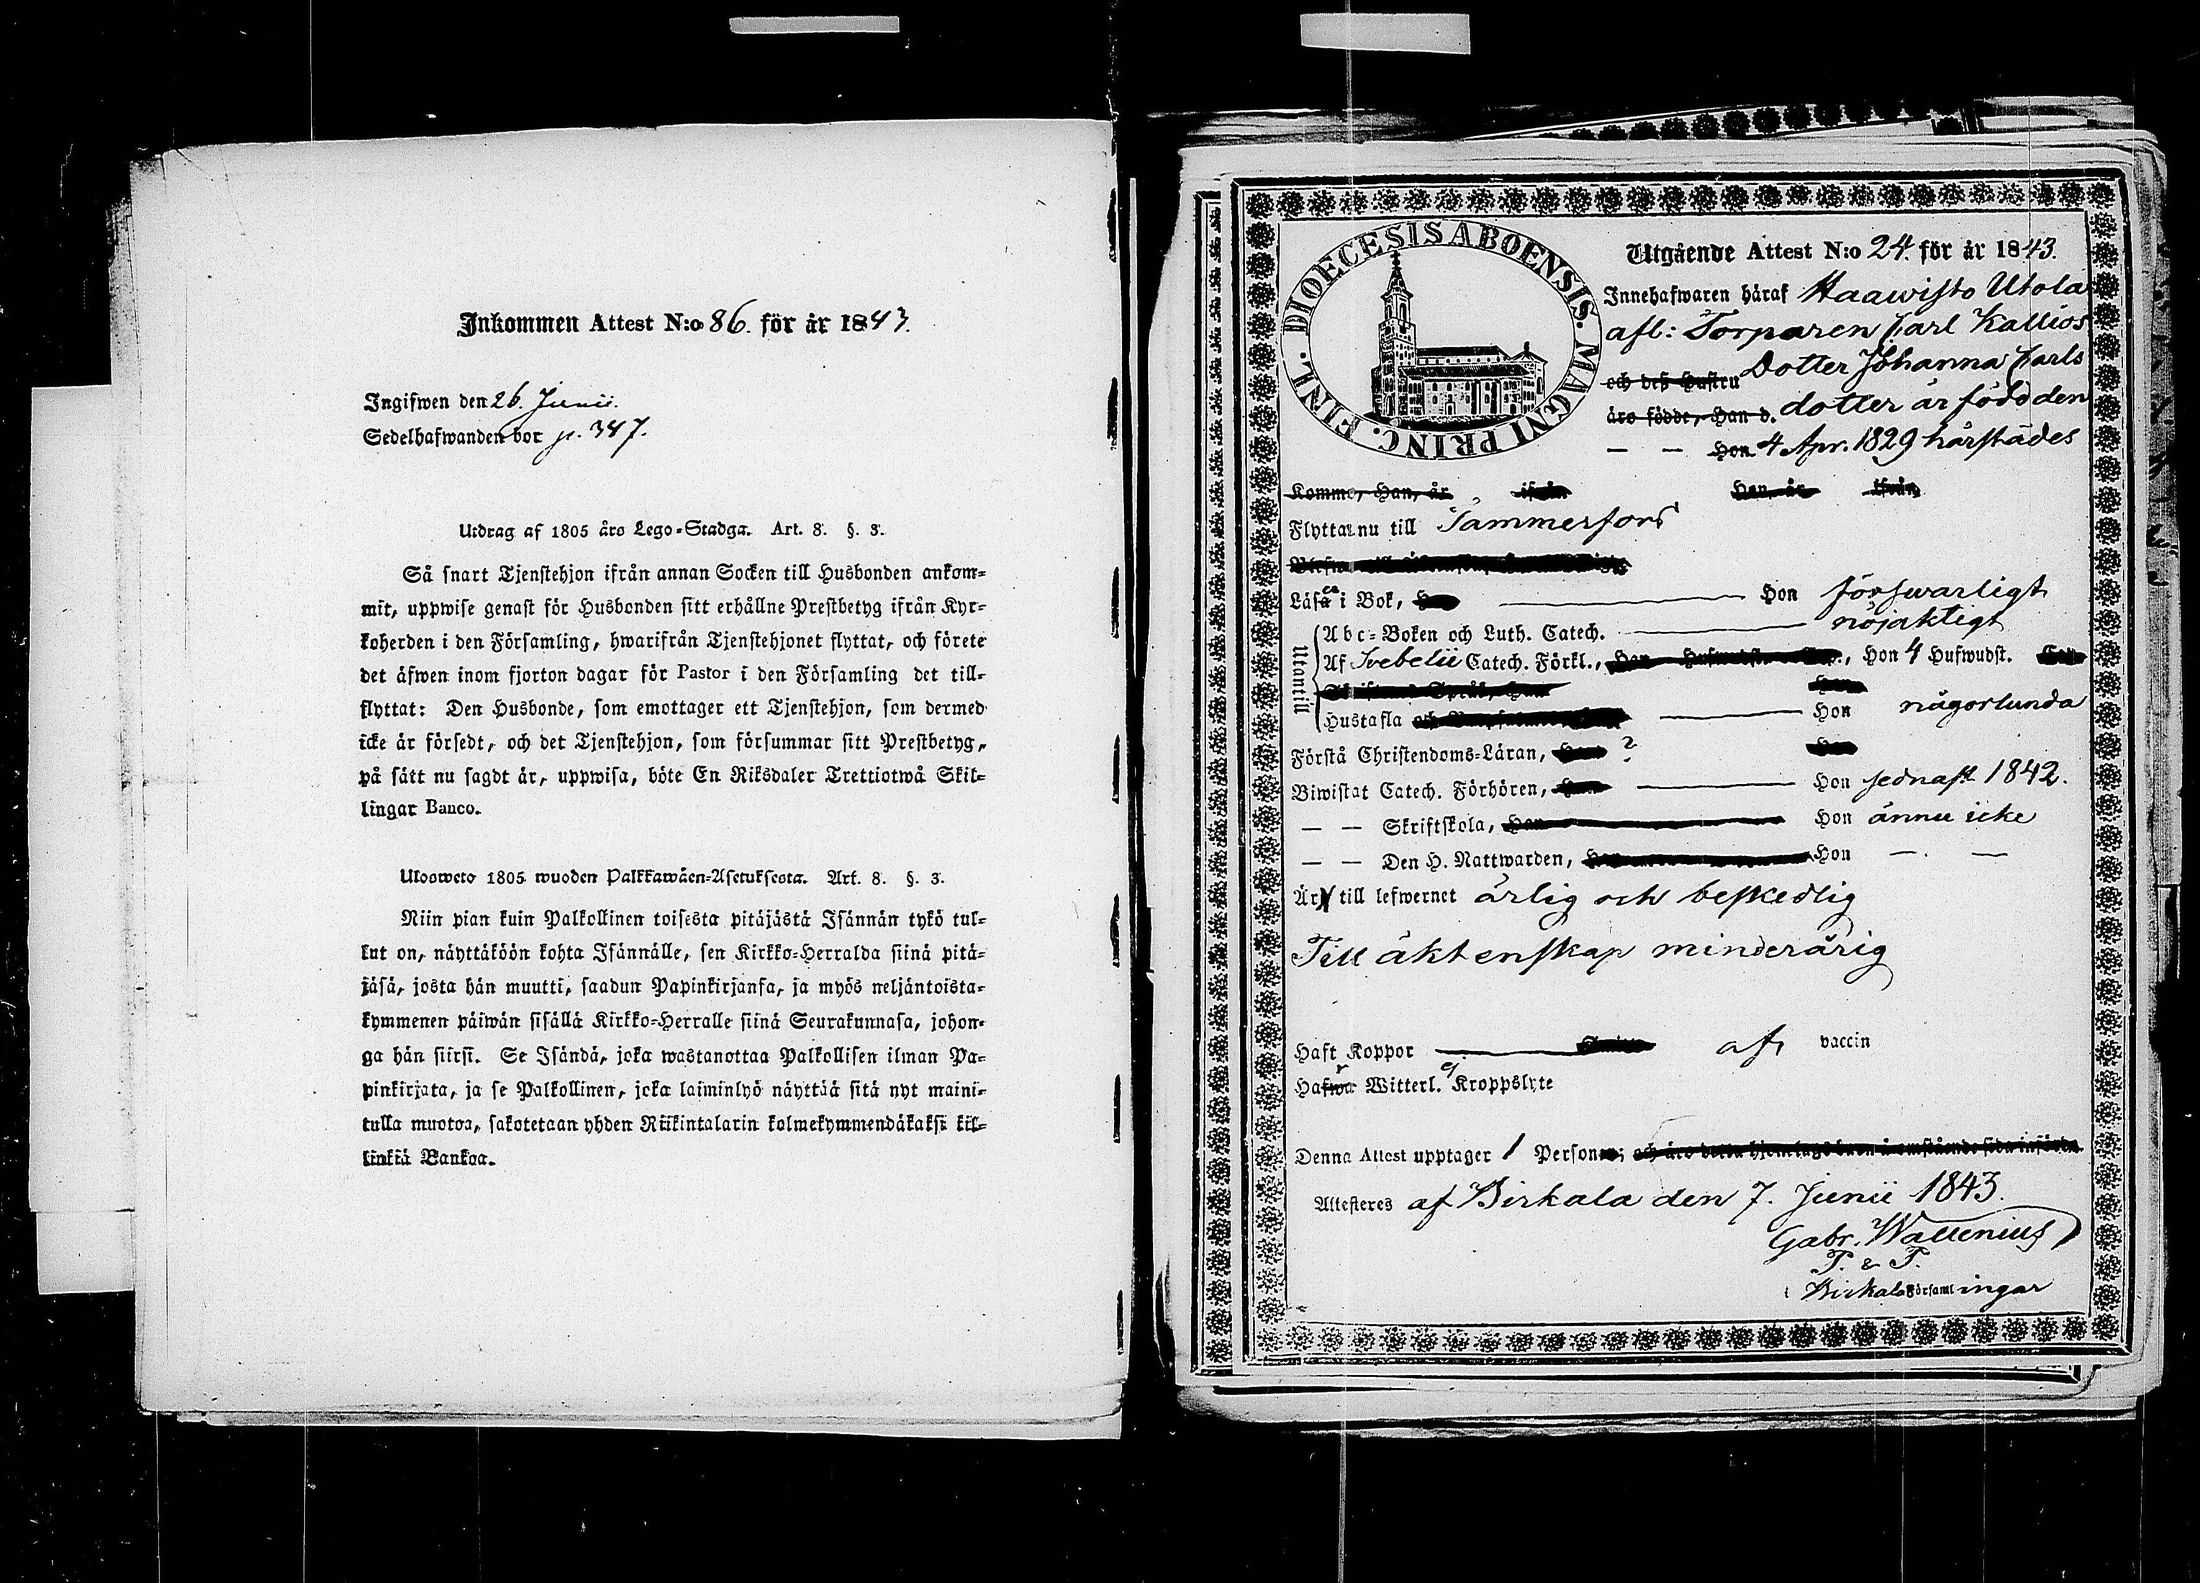 Inkommen Attest N:o 86. för år 1843.
Ingifwen den 26. Junii.
Sedelhafwanden bor p. 347.
Utdrag af 1805 års Lego-Stadga. Art. 8. §. 3.
Så snart Tjenstehjon ifrån annan Socken till Husbonden ankom-
mit, uppwise genast för Husbonden sitt erhållne Prestbetyg ifrån Kyr-
koherden i den Församling, hwarifrån Tjenstehjonet flyttat, och förete
det äfwen inom fjorton dagar för Pastor i den Församling det till-
flyttat: Den Husbonde, som emottager ett Tjenstehjon, som dermed
icke är försedt, och det Tjenstehjon, som försummar sitt Prestbetyg,
på sätt nu sagdt är, uppwisa, böte En Riksdaler Trettiotwå Skil-
lingar Banco.
Ulosweto 1805 wuoden Palkkawäen-Asetuksesta. Art. 8. §. 3.
Niin pian kuin Palkollinen toisesta pitäjästä Isännän tykö tul-
lut on, näyttäköön kohta Isännälle, sen Kirkko-Herralda siinä pitä-
jäsä, josta hän muutti, saadun Papinkirjansa, ja myös neljäntoista-
kymmenen päiwän sisällä Kirkko-Herralle siinä Seurakunnasa, johon-
ga hän siirsi. Se Isändä, joka wastanottaa Palkollisen ilman Pa-
pinkirjata, ja se Palkollinen, joka laiminlyö näyttää sitä nyt maini-
tulla muotoa, sakotetaan yhden Riikintalarin kolmekymmendäkaksi kil-
linkiä Bankoa.
DIOECESIS ABOENSIS. MAGNI PRINC. FINL.
Utgående Attest N:o 24. för år 1843.
Innehafwaren häraf Haawisto Utola
afl: Torparen Carl Kallios
och dess Hustru Dotter Johanna Carls
äro födde, Han d. dotter är född den
— — Hon 4 Apr. 1829 härstädes
Komme, Han, år ifrån Hon, år ifrån
Flyttar nu till Tammerfors
Läsa i Bok, ——— Hon förswarligt
Utantill
Abc-Boken och Luth. Catech. ——— nöjaktigt
Af Svebelii Catech. Förkl., Hon 4 Hufwudst.
Hustafla ——— Hon någorlunda
Förstå Christendoms-Läran, ?
Biwistat Catech. Förhören, ——— Hon sednast 1842.
— — Skriftskola, Hon ännu icke
— — Den H. Nattwarden, Hon — . —
Är till lefwernet ärlig och beskedlig
Till äktenskap minderårig
Haft Koppor ——— af vaccin
Har Witterl. ej Kroppslyte
Denna Attest upptager 1 Person; och äro detta hjonelags barn å omstående sida införde
Attesteres af Birkala den 7. Junii 1843.
Gabr. Wallenius
P. & P.
i Birkala Församlingar